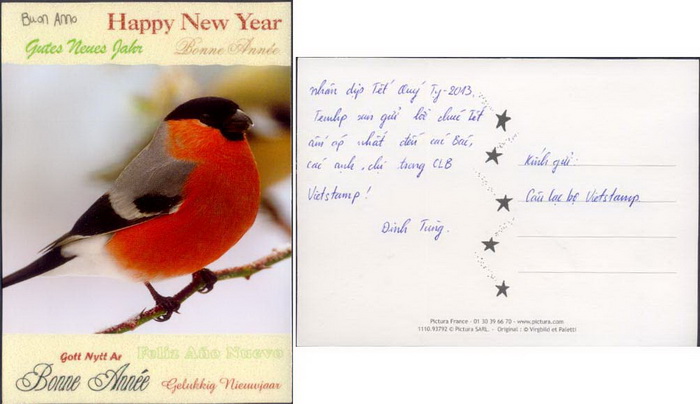 Buon Anno
Happy New Year
Gutes Neues Jahr
Bonne Année
Gott Nytt Ar
Feliz Año Nuevo
Bonne Année
Gelukkig Nieuwjaar
nhân dịp Tết Quý Tỵ-2013,
Temhp xin gửi lời chúc Tết
ấm áp nhất đến các Bác,
các anh, chị trong CLB
Vietstamp!
Đinh Tùng.
Kính gửi:
Câu lạc bộ Vietstamp
Pictura France - 01 30 39 66 70 - www.pictura.com
1110.93792 © Pictura SARL. - Original : © Virgbild et Paletti